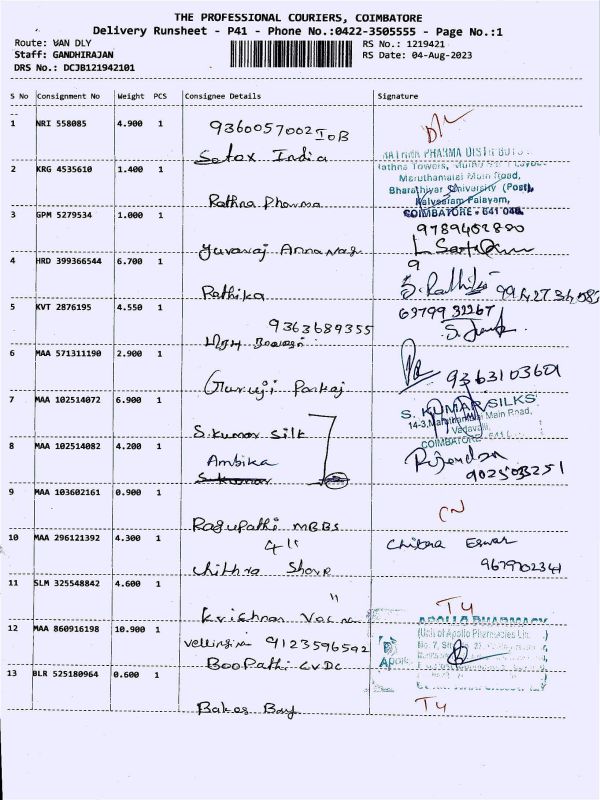 THE PROFESSIONAL COURIERS, COIMBATORE
Delivery Runsheet - P41 - Phone No.:0422-3505555 - Page No.:1
Route: VAN DLY
RS No.: 1219421
Staff: GANDHIRAJAN
RS Date: 04-Aug-2023
DRS No.: DCJB121942101
S No Consignment No Weight PCS Consignee Details Signature
1 NRI 558085 4.900 1
9360057002 TOB
Setax India
2 KRG 4535610 1.400 1
RATHNA PHARMA
Rathna Towers,
Maruthamalai Main Road,
Bharathiyar University (Post),
Kalveeram Palayam,
COIMBATORE - 641 046.
Rathna Pharma
3 GPM 5279534 1.000 1
9789402800
Yuvaraj Anna Nagar
4 HRD 399366544 6.700 1
Rathika
S. Rathika
5 KVT 2876195 4.550 1
9363689355
63799 31267
6 MAA 571311190 2.900 1
9363103601
Guruji Pankaj
7 MAA 102514072 6.900 1
S. KUMAR SILKS
14-3, Maruthamalai Main Road,
Vadavalli,
COIMBATORE
S. Kumar Silk
8 MAA 102514082 4.200 1
Ambika
Rijendan
9025033251
9 MAA 103602161 0.900 1
CN
Ragupathi MBBS
10 MAA 296121392 4.300 1
Chitra Eswar
9679702341
Chithra Shove
11 SLM 325548842 4.600 1
T4
Krishnan
12 MAA 860916198 10.900 1
9123596592
Boopathi CVDC
APOLLO PHARMACY
(Unit of Apollo Pharmacies Ltd.)
Apollo
13 BLR 525180964 0.600 1
T4
Bakes Bay